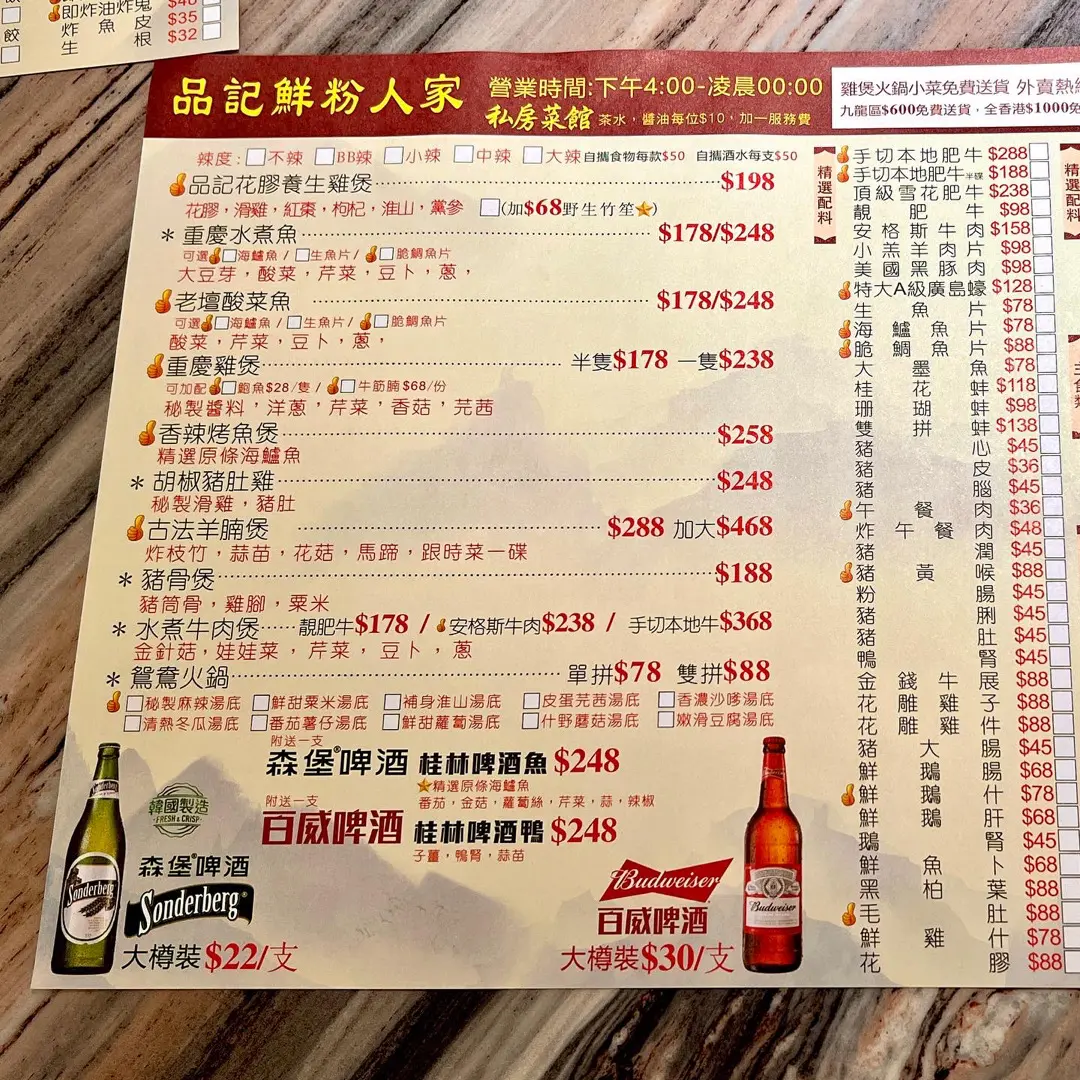 即炸油炸鬼 $48
炸魚皮 $35
生根 $32
餃
品記鮮粉人家
營業時間:下午4:00-凌晨00:00
私房菜館 茶水，醬油每位$10，加一服務費
雞煲火鍋小菜免費送貨 外賣熱
九龍區$600免費送貨，全香港$1000免
辣度: 不辣 BB辣 小辣 中辣 大辣 自攜食物每款$50 自攜酒水每支$50
品記花膠養生雞煲 $198
花膠，滑雞，紅棗，枸杞，淮山，黨參 (加$68野生竹笙)
* 重慶水煮魚 $178/$248
可選 海鱸魚 / 生魚片 / 脆鯛魚片
大豆芽，酸菜，芹菜，豆卜，蔥，
老壇酸菜魚 $178/$248
可選 海鱸魚 / 生魚片 / 脆鯛魚片
酸菜，芹菜，豆卜，蔥，
重慶雞煲 半隻$178 一隻$238
可加配 鮑魚$28/隻 / 牛筋腩$68/份
秘製醬料，洋蔥，芹菜，香菇，芫茜
香辣烤魚煲 $258
精選原條海鱸魚
* 胡椒豬肚雞 $248
秘製滑雞，豬肚
古法羊腩煲 $288 加大$468
炸枝竹，蒜苗，花菇，馬蹄，跟時菜一碟
* 豬骨煲 $188
豬筒骨，雞腳，粟米
* 水煮牛肉煲 靚肥牛$178 / 安格斯牛肉$238 / 手切本地牛$368
金針菇，娃娃菜，芹菜，豆卜，蔥
* 鴛鴦火鍋 單拼$78 雙拼$88
秘製麻辣湯底 鮮甜粟米湯底 補身淮山湯底 皮蛋芫茜湯底 香濃沙嗲湯底
清熱冬瓜湯底 番茄薯仔湯底 鮮甜蘿蔔湯底 什野蘑菇湯底 嫩滑豆腐湯底
附送一支
森堡®啤酒 桂林啤酒魚 $248
精選原條海鱸魚
番茄，金菇，蘿蔔絲，芹菜，蒜，辣椒
附送一支
百威啤酒 桂林啤酒鴨 $248
子薑，鴨腎，蒜苗
韓國製造
FRESH & CRISP
森堡®啤酒
Sonderberg®
大樽裝$22/支
Sonderberg
Budweiser
百威啤酒
大樽裝$30/支
Budweiser
精選配料
手切本地肥牛 $288
手切本地肥牛半碟 $188
頂級雪花肥牛 $238
靚肥牛 $98
安格斯牛肉 $158
小羔羊肉片 $98
美國黑豚肉 $98
特大A級廣島蠔 $128
生魚片 $78
海鱸魚片 $78
脆鯛魚片 $88
大墨魚 $78
桂花蚌 $118
珊瑚蚌 $98
雙拼蚌 $138
豬心 $45
豬皮 $36
豬腦 $45
午餐肉 $36
炸午餐肉 $48
豬潤 $45
豬黃喉 $88
粉腸 $45
豬脷 $45
豬肚 $45
鴨腎 $45
金錢牛展 $88
花雕雞子 $88
花雕雞件 $88
豬大腸 $45
鮮鵝腸 $68
鮮鵝什 $78
鮮鵝肝 $68
鵝腎 $45
鮮魚卜 $68
黑柏葉 $88
毛肚 $88
鮮雞什 $78
花膠 $88
精選配料